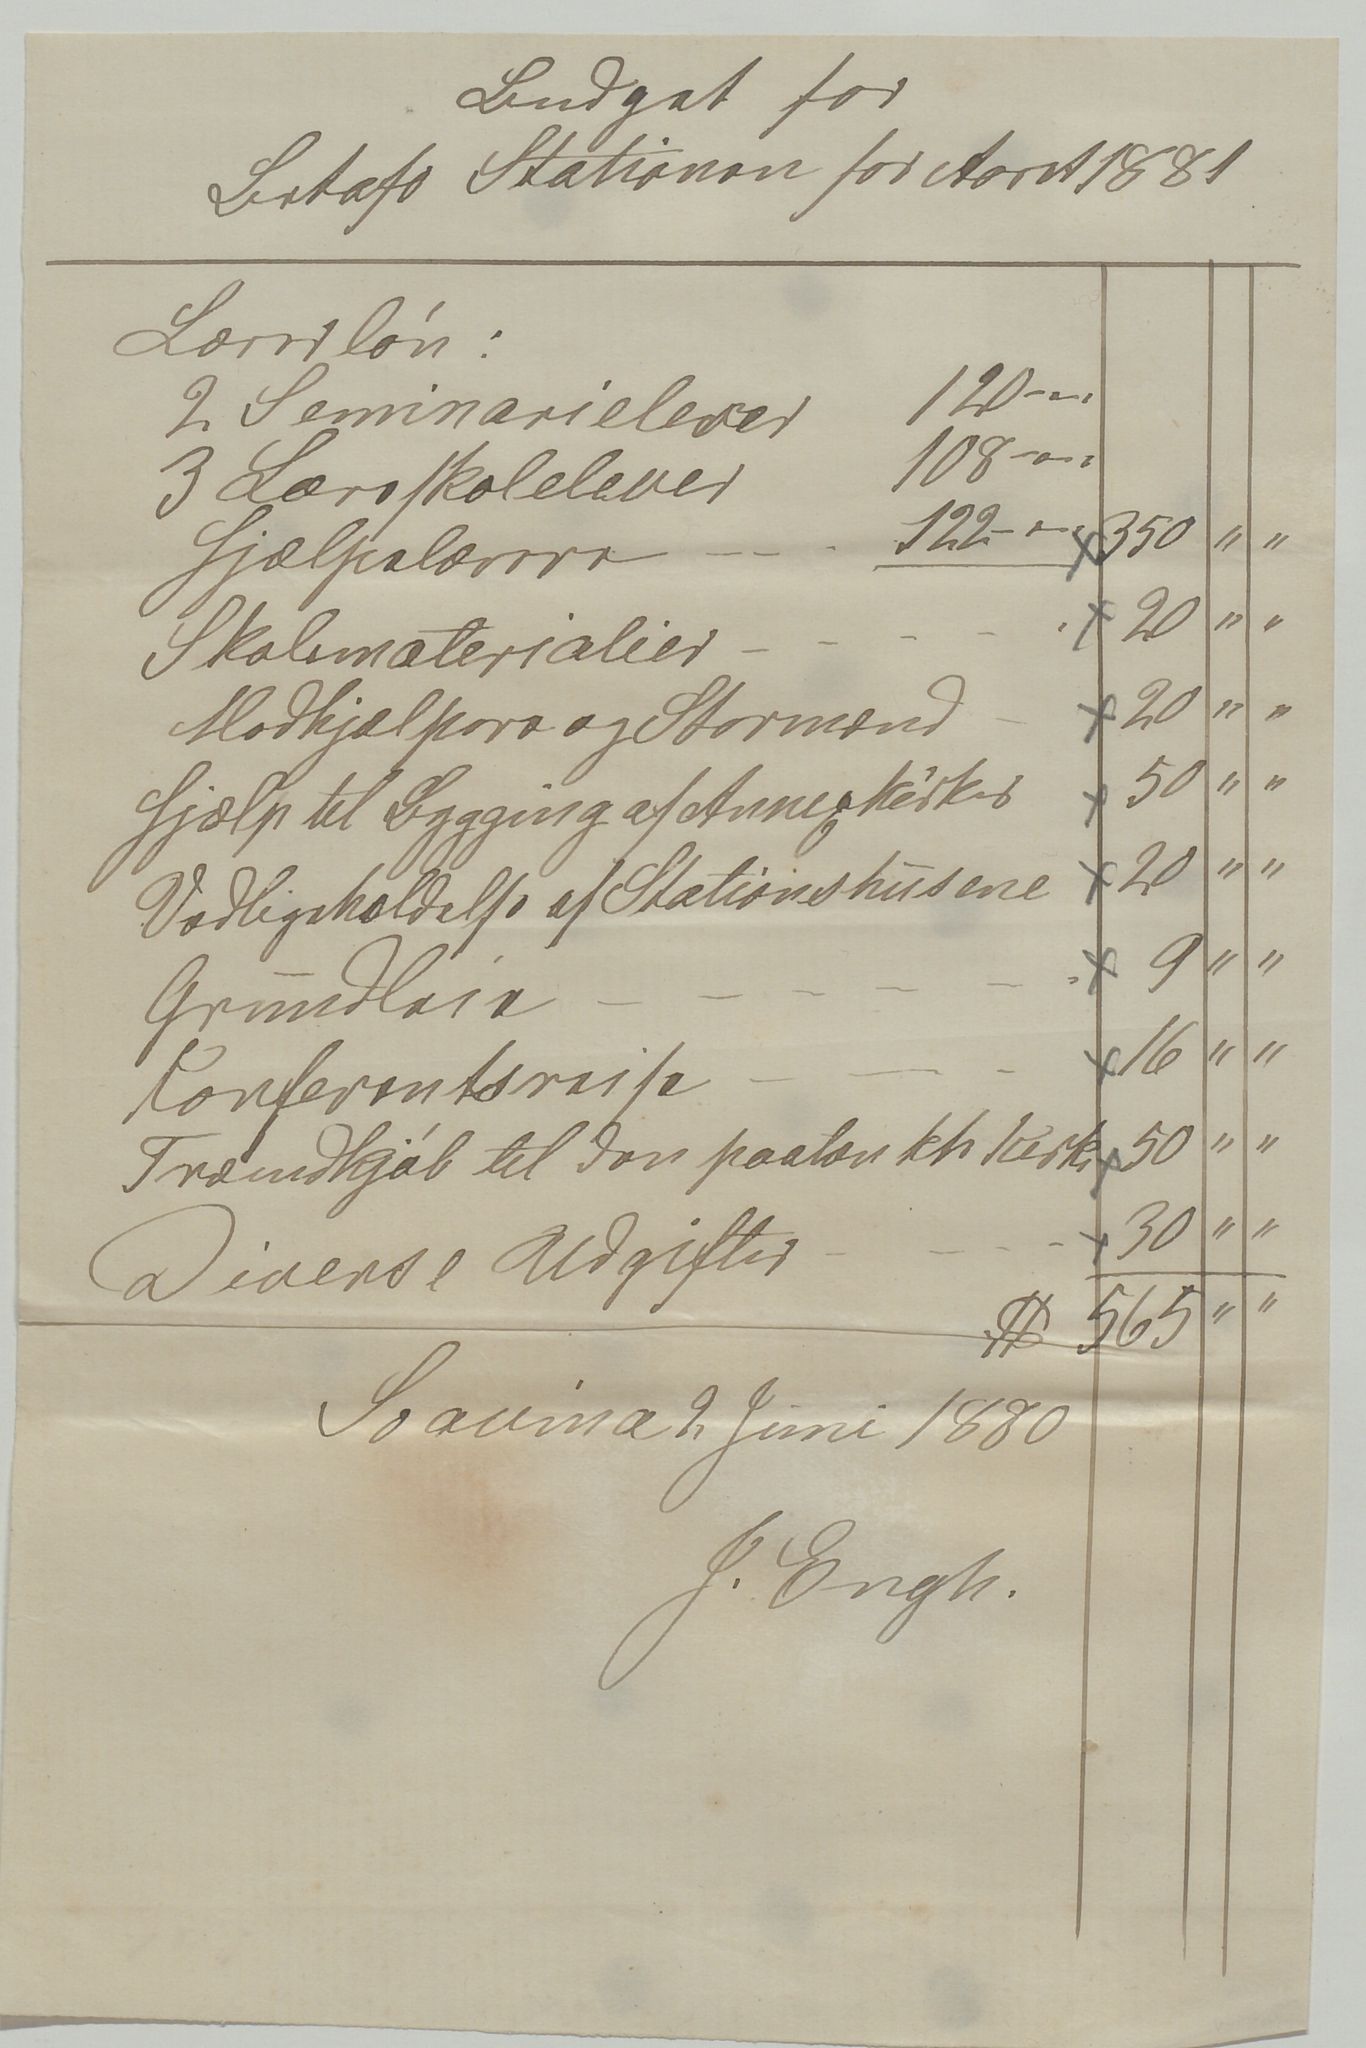 Budget for
Betafo Stationen for Aaret 1881
Lærerløn:
2 Seminarielever 120 " "
3 Læreskolelever 108 " "
Hjælpelærere - - - 122 " " x 350 " "
Skolematerialier - - - - x 20 " "
Medhjælpere og Stormænd - x 20 " "
Hjælp til Bygging af Annexkirker x 50 " "
Vedligeholdelse af Stationshusene x 20 " "
Grundleie - - - - - - x 9 " "
Conferentsreise - - - x 16 " "
Træindkjøb til den paatænkte Kirke x 50 " "
Diverse Udgifter - - - - x 30 " "
$ 565 " "
Soavina 2 Juni 1880
J. Engh.